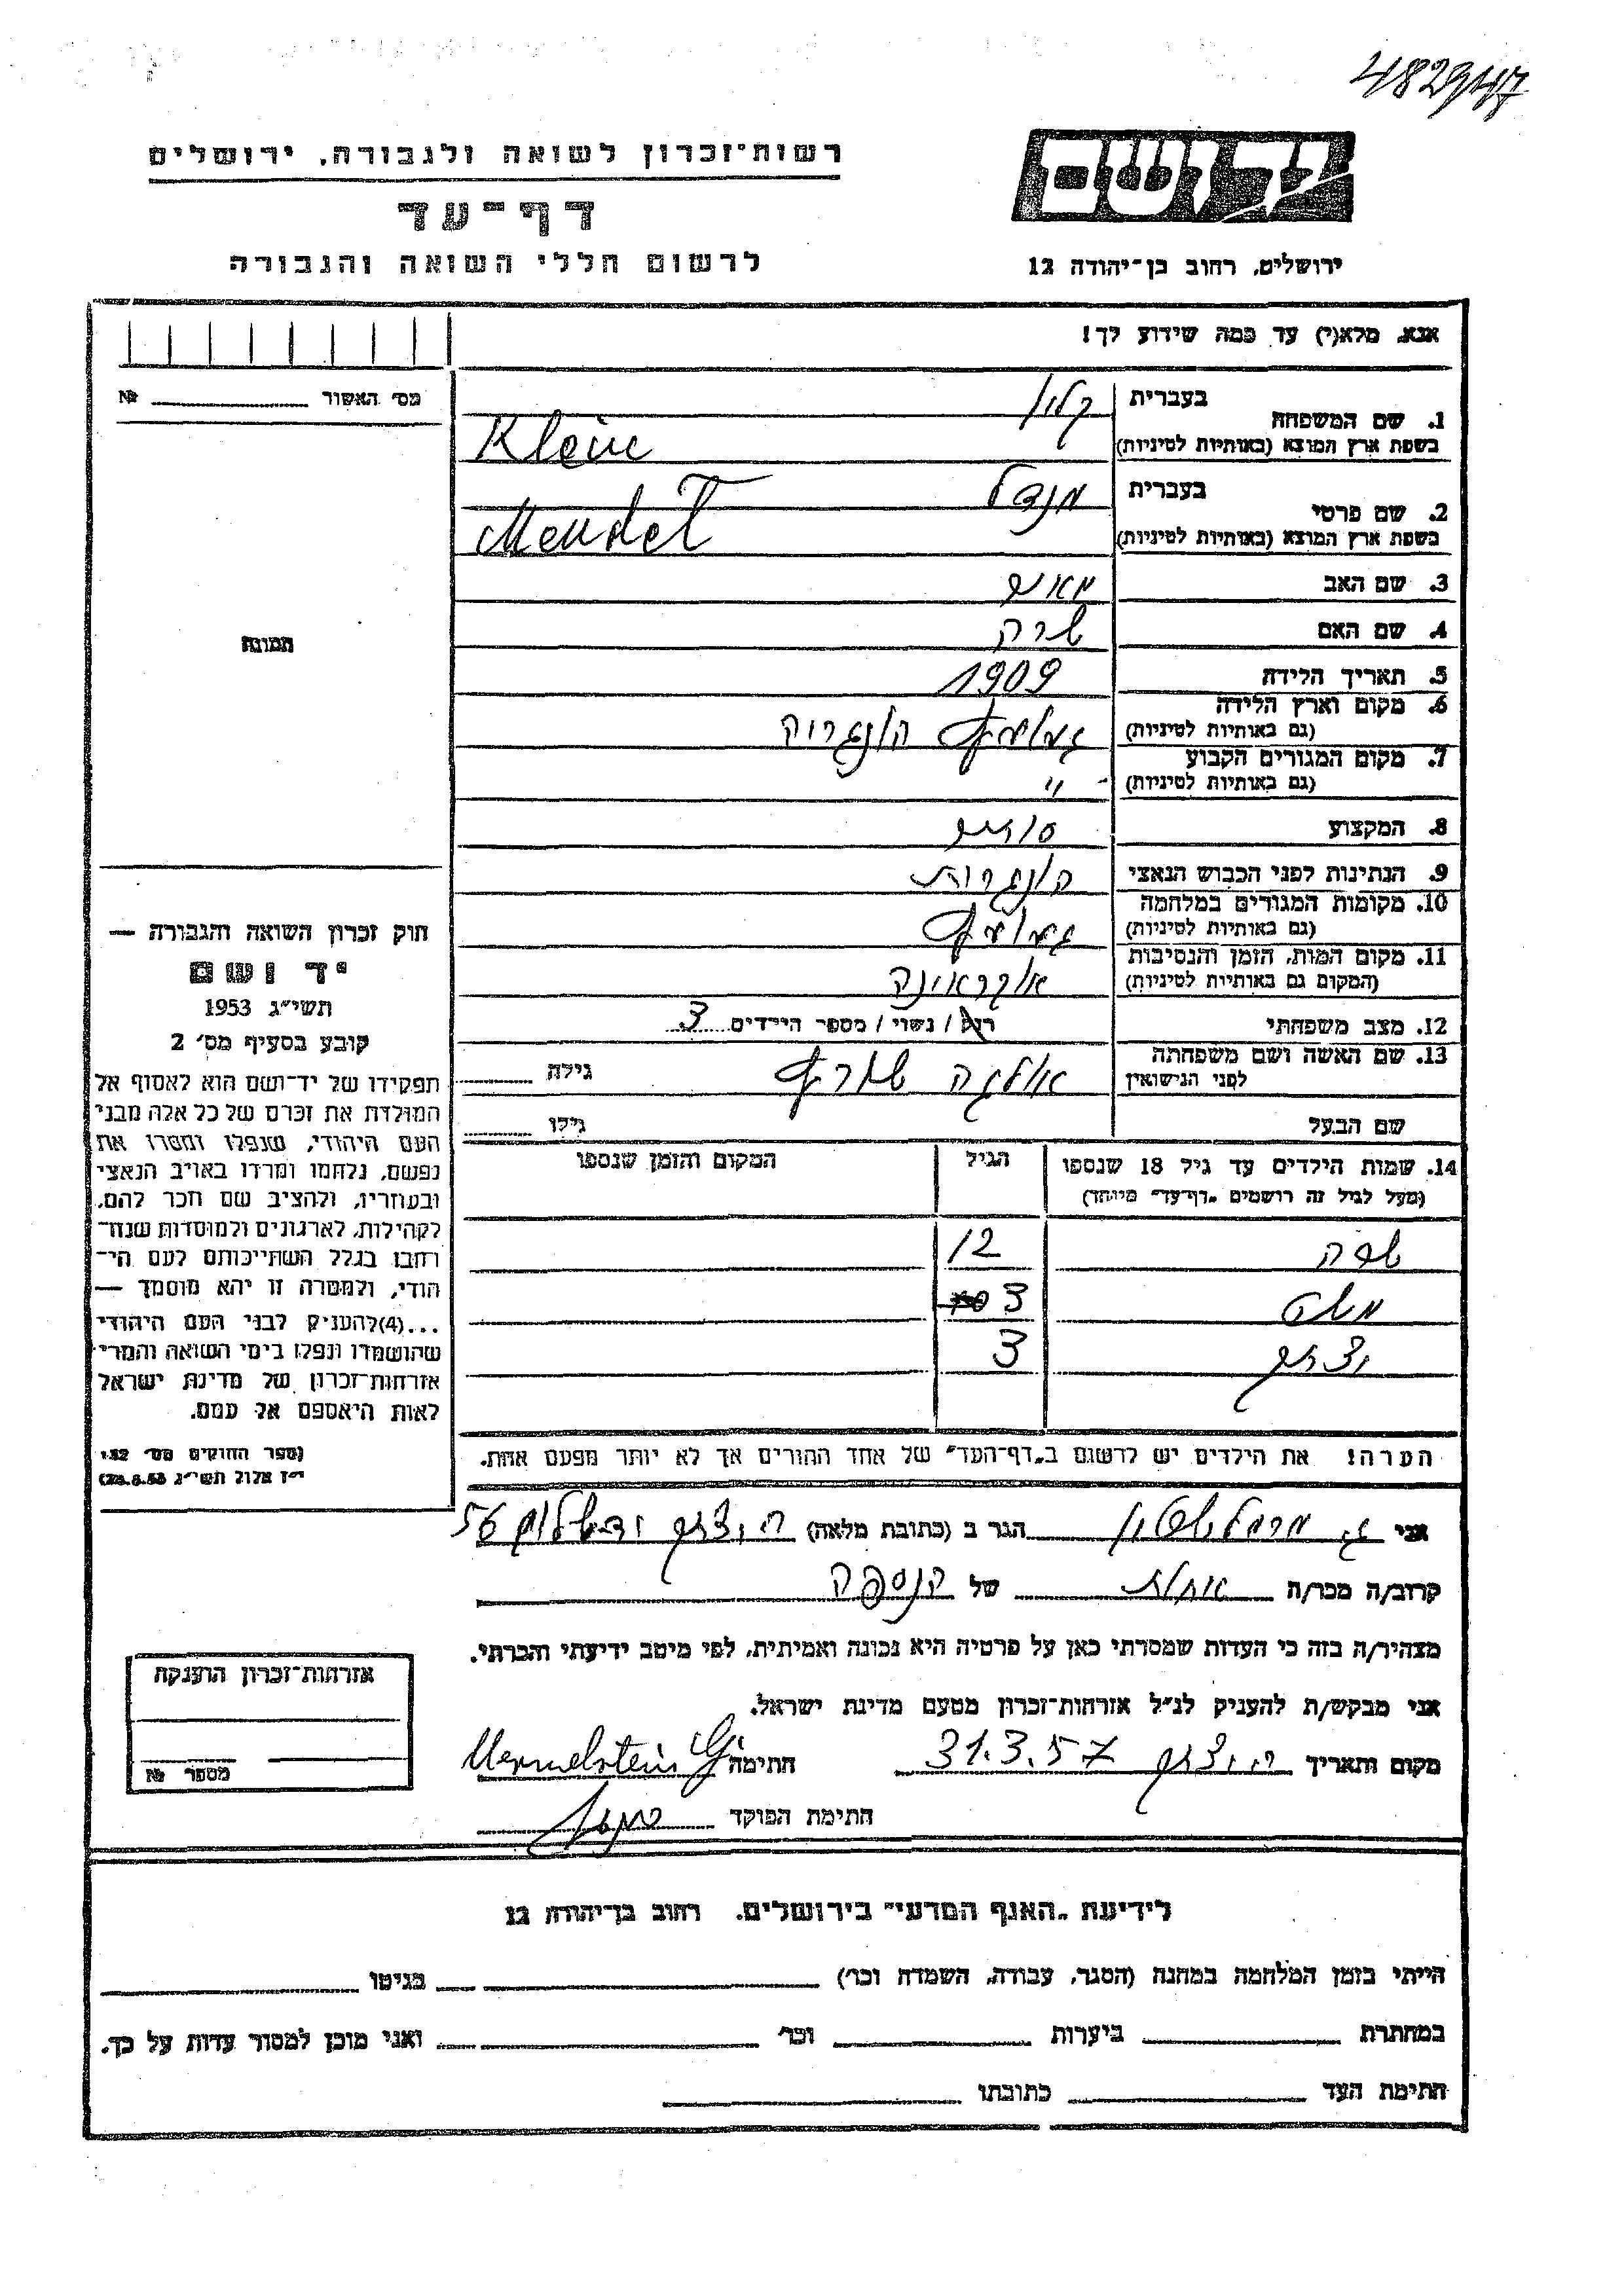 482947
רשות־זכרון לשואה ולגבורה, ירושלים
יד ושם
דף־עד
לרשום חללי השואה והגבורה
ירושלים, רחוב בן־יהודה 12
אנא, מלא(י) עד כמה שידוע לך!
מס׳ האשור № 
1. שם המשפחה
בעברית קליין
בשפת ארץ המוצא (באותיות לטיניות) Klein
2. שם פרטי
בעברית מנדל
בשפת ארץ המוצא (באותיות לטיניות) Mendel
3. שם האב
4. שם האם שרה
5. תאריך הלידה 1909
6. מקום וארץ הלידה הונגריה
(גם באותיות לטיניות)
7. מקום המגורים הקבוע "
(גם באותיות לטיניות)
8. המקצוע סוחר
9. הנתינות לפני הכבוש הנאצי הונגרית
10. מקומות המגורים במלחמה
(גם באותיות לטיניות)
11. מקום המות, הזמן והנסיבות אוקראינה
(המקום גם באותיות לטיניות)
12. מצב משפחתי רוק / נשוי / מספר הילדים 3
13. שם האשה ושם משפחתה
לפני הנישואין
גילה
שם הבעל גילו
14. שמות הילדים עד גיל 18 שנספו
(מעל לגיל זה רושמים „דף־עד” מיוחד)
הגיל
המקום והזמן שנספו
שרה 12
משה 3
3
הערה! את הילדים יש לרשום ב„דף־העד” של אחד ההורים אך לא יותר מפעם אחת.
תמונה
חוק זכרון השואה והגבורה —
יד ושם
תשי״ג 1953
קובע בסעיף מס׳ 2
תפקידו של יד־ושם הוא לאסוף אל
המולדת את זכרם של כל אלה מבני
העם היהודי, שנפלו ומסרו את
נפשם, נלחמו ומרדו באויב הנאצי
ובעוזריו, ולהציב שם וזכר להם,
לקהילות, לארגונים ולמוסדות שנח־
רבו בגלל השתייכותם לעם הי־
הודי, ולמטרה זו יהא מוסמך —
...(4) להעניק לבני העם היהודי
שהושמדו ונפלו בימי השואה והמרי
אזרחות־זכרון של מדינת ישראל
לאות היאספם אל עמם.
(ספר החוקים מס׳ 132
י״ז אלול תשי״ג 28.8.53)
אני ג. מרמלשטיין הגר ב (כתובת מלאה) 56
קרוב/ה מכר/ה אחות של הנספה
מצהיר/ה בזה כי העדות שמסרתי כאן על פרטיה היא נכונה ואמיתית, לפי מיטב ידיעתי והכרתי.
אני מבקש/ת להעניק לנ״ל אזרחות־זכרון מטעם מדינת ישראל.
מקום ותאריך 31.3.57 חתימה Mermelstein G
חתימת הפוקד
אזרחות־זכרון הוענקה
מספר №
לידיעת „האגף המדעי” בירושלים. רחוב בן־יהודה 12
הייתי בזמן המלחמה במחנה (הסגר, עבודה, השמדה וכו׳) בגיטו
במחתרת ביערות וכו׳ ואני מוכן למסור עדות על כך.
חתימת העד כתובתו